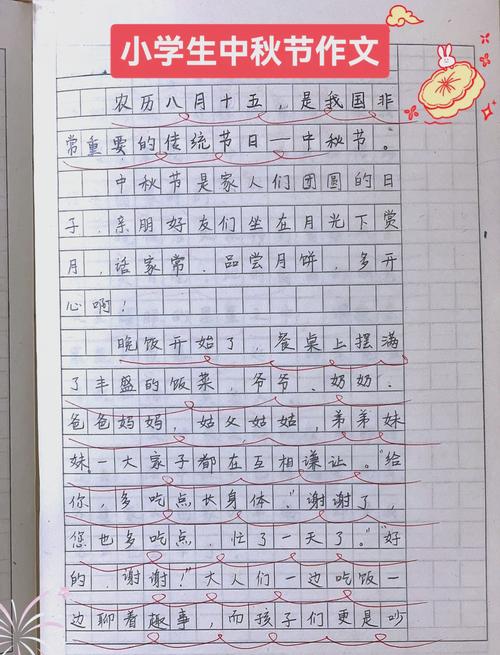 小学生中秋节作文
农历八月十五，是我国非
常重要的传统节日一中秋节。
中秋节是家人们团圆的日
子，亲朋好友们坐在月光下赏
月，话家常，品尝月饼，多开
心啊！
晚饭开始了，餐桌上摆满
了丰盛的饭菜，爷爷、奶奶、
爸爸妈妈，姑父姑姑，弟弟妹
妹一大家子都在互相谦让。“给
你，多吃点长身体。”“谢谢了，
您也多吃点，忙了一天了。”“好
的，谢谢！”大人们一边吃饭一
边聊着趣事，而孩子们更是吵